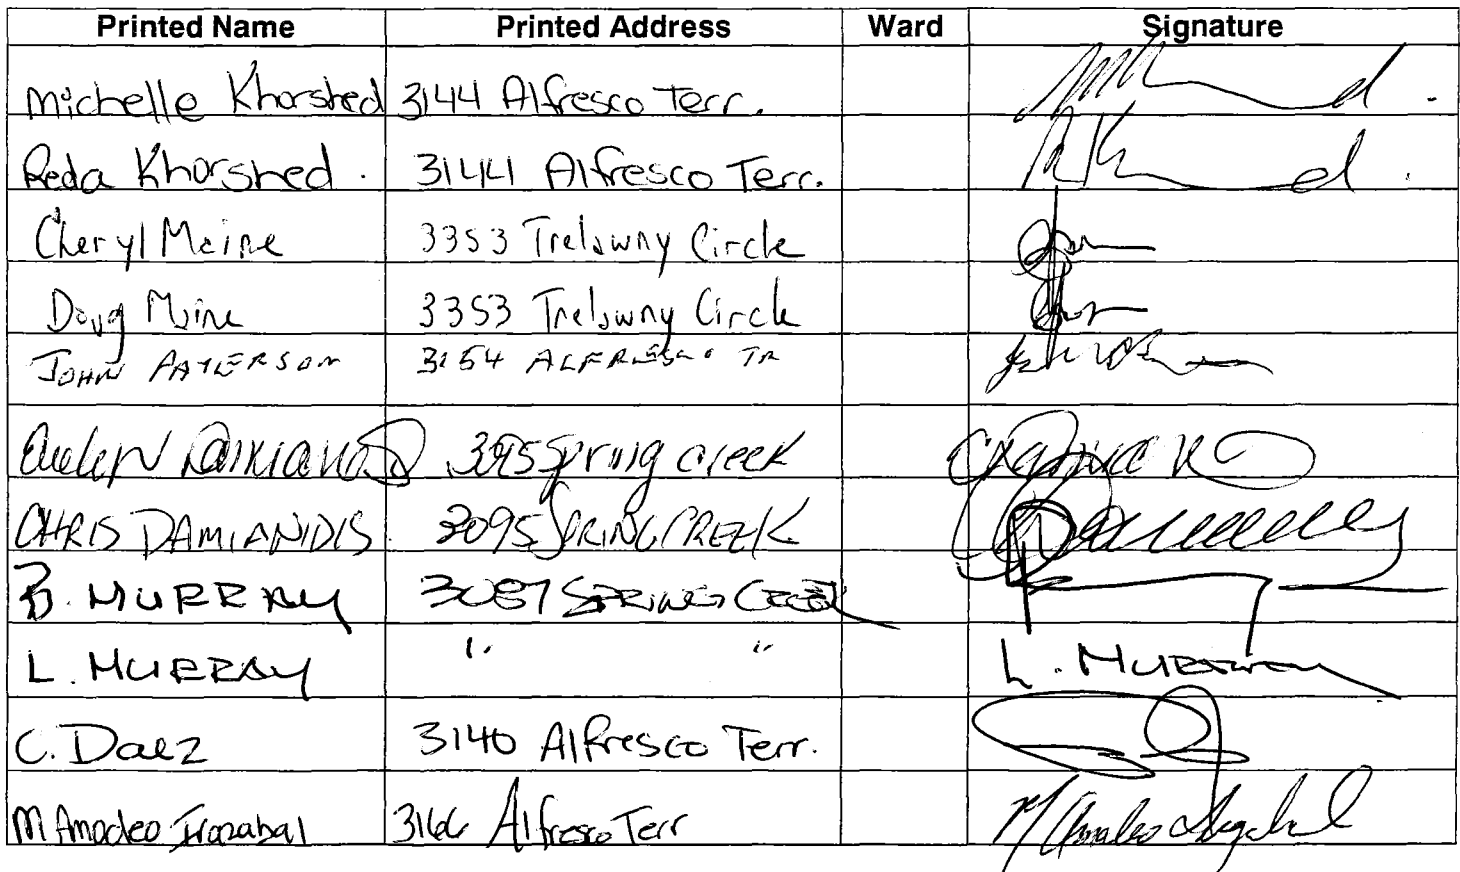 Printed Name Printed Address Ward Signature
Michelle Khorshed 3144 Alfresco Terr.
Reda Khorshed. 3144 Alfresco Terr.
Cheryl Maine 3353 Trelawny Circle
Doug Maine 3353 Trelawny Circle
JOHN PATERSON 3154 ALFRESCO TR
3095 Spring creek
CHRIS DAMIANIDIS 3095 SPRING CREEK
B. MURRAY 3087 SPRING CREEK
L. MURRAY " " L. MURRAY
C. Daez 3140 Alfresco Terr.
M Amadeo Irazabal 3166 Alfresco Terr M Amadeo Irazabal